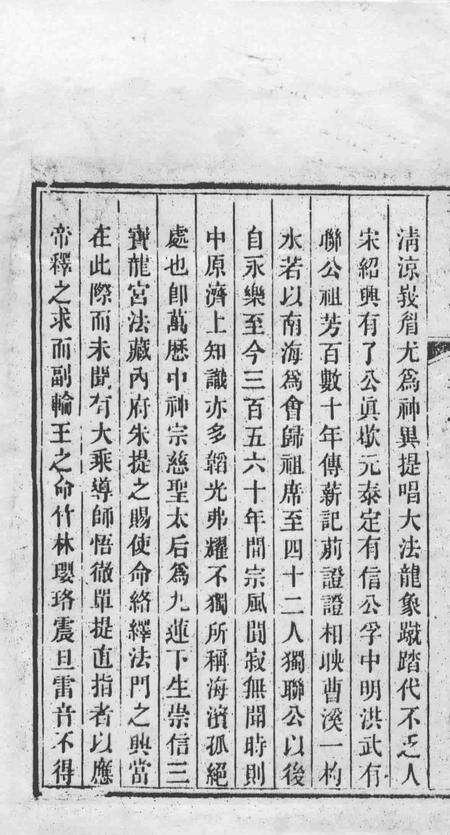 清涼峩眉尤爲神異提唱大法龍象蹴踏代不乏人
宋紹興有了公眞歇元泰定有信公孚中明洪武有
聯公祖芳百數十年傳薪記莂證證相映曹溪一杓
水若以南海爲會歸祖席至四十二人獨聯公以後
自永樂至今三百五六十年間宗風閴寂無聞時則
中原濟上知識亦多韜光弗耀不獨所稱海濵孤絕
處也卽萬歷中神宗慈聖太后爲九蓮下生崇信三
寶龍宮法藏內府朱提之賜使命絡繹法門之興當
在此際而未聞有大乘導師悟徹單提直指者以應
帝釋之求而副輪王之命竹林瓔珞震旦雷音不得